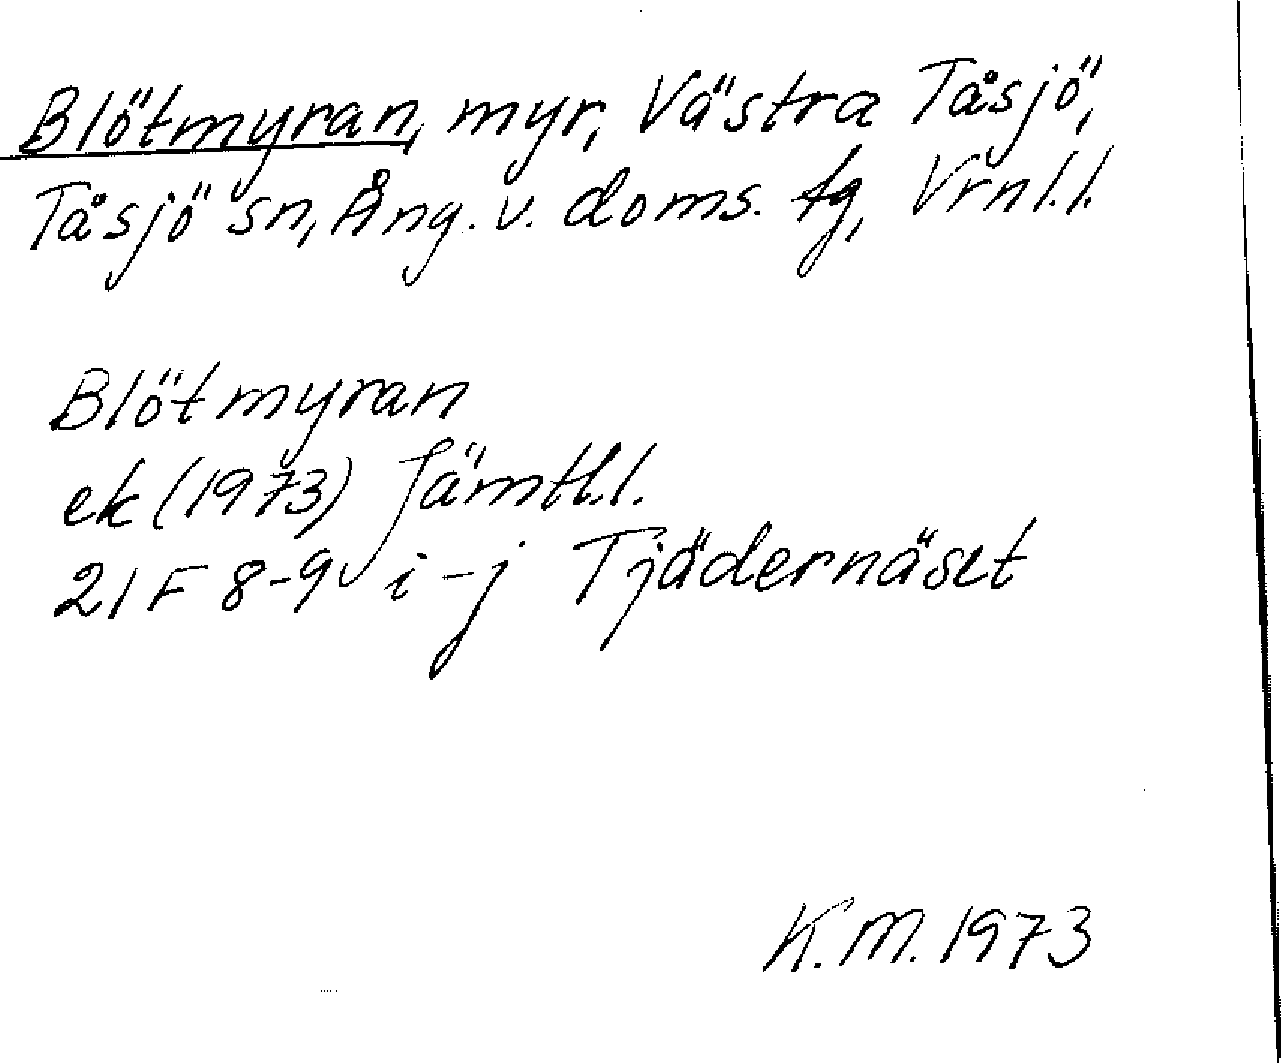 Blötmyran, myr, Västra Tåsjö,
Tåsjö sn, Ång. v. doms. tg, Vrnl.l.
Blötmyran
ek (1973) Jämtl.l.
21 F 8-9 i-j Tjädernäset
K.M. 1973